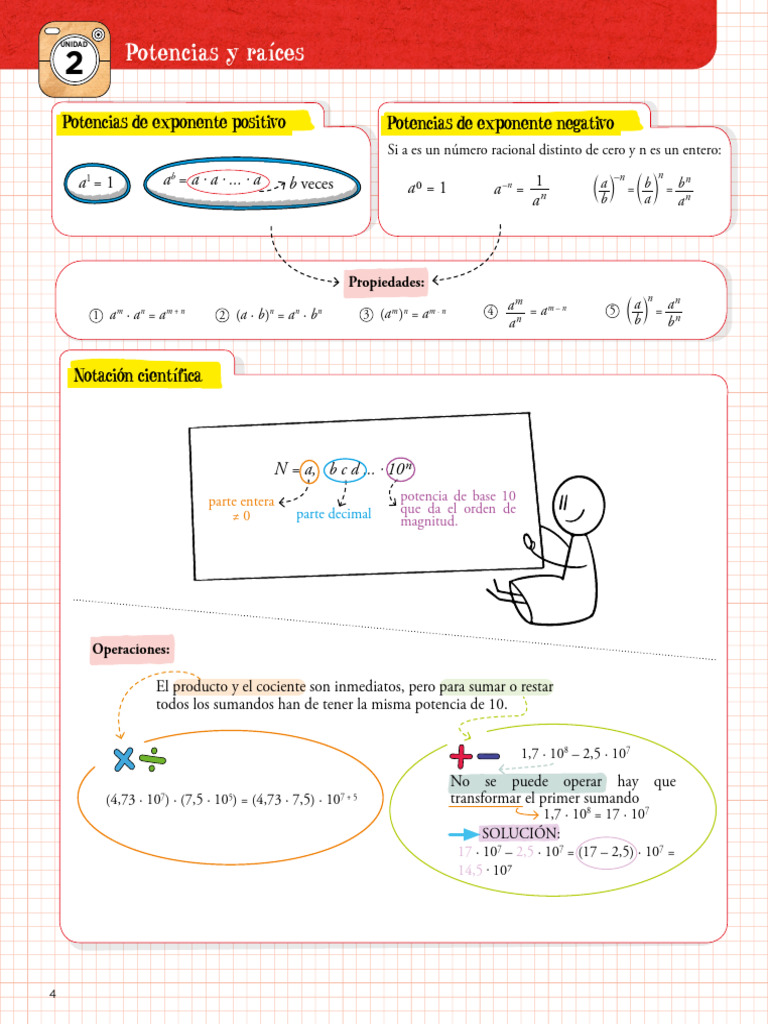 UNIDAD
2
Potencias y raíces
Potencias de exponente positivo
a¹ = 1
aᵇ = a · a · ... · a
b veces
Potencias de exponente negativo
Si a es un número racional distinto de cero y n es un entero:
a⁰ = 1
a⁻ⁿ = 1/aⁿ
(a/b)⁻ⁿ = (b/a)ⁿ = bⁿ/aⁿ
Propiedades:
① aᵐ · aⁿ = aᵐ ⁺ ⁿ
② (a · b)ⁿ = aⁿ · bⁿ
③ (aᵐ)ⁿ = aᵐ · ⁿ
④ aᵐ/aⁿ = aᵐ ⁻ ⁿ
⑤ (a/b)ⁿ = aⁿ/bⁿ
Notación científica
N = a, b c d .. · 10ⁿ
parte entera
≠ 0
parte decimal
potencia de base 10
que da el orden de
magnitud.
Operaciones:
El producto y el cociente son inmediatos, pero para sumar o restar
todos los sumandos han de tener la misma potencia de 10.
× ÷
(4,73 · 10⁷) · (7,5 · 10⁵) = (4,73 · 7,5) · 10⁷ ⁺ ⁵
+ –
1,7 · 10⁸ – 2,5 · 10⁷
No se puede operar hay que
transformar el primer sumando
1,7 · 10⁸ = 17 · 10⁷
SOLUCIÓN:
17 · 10⁷ – 2,5 · 10⁷ = (17 – 2,5) · 10⁷ =
14,5 · 10⁷
4